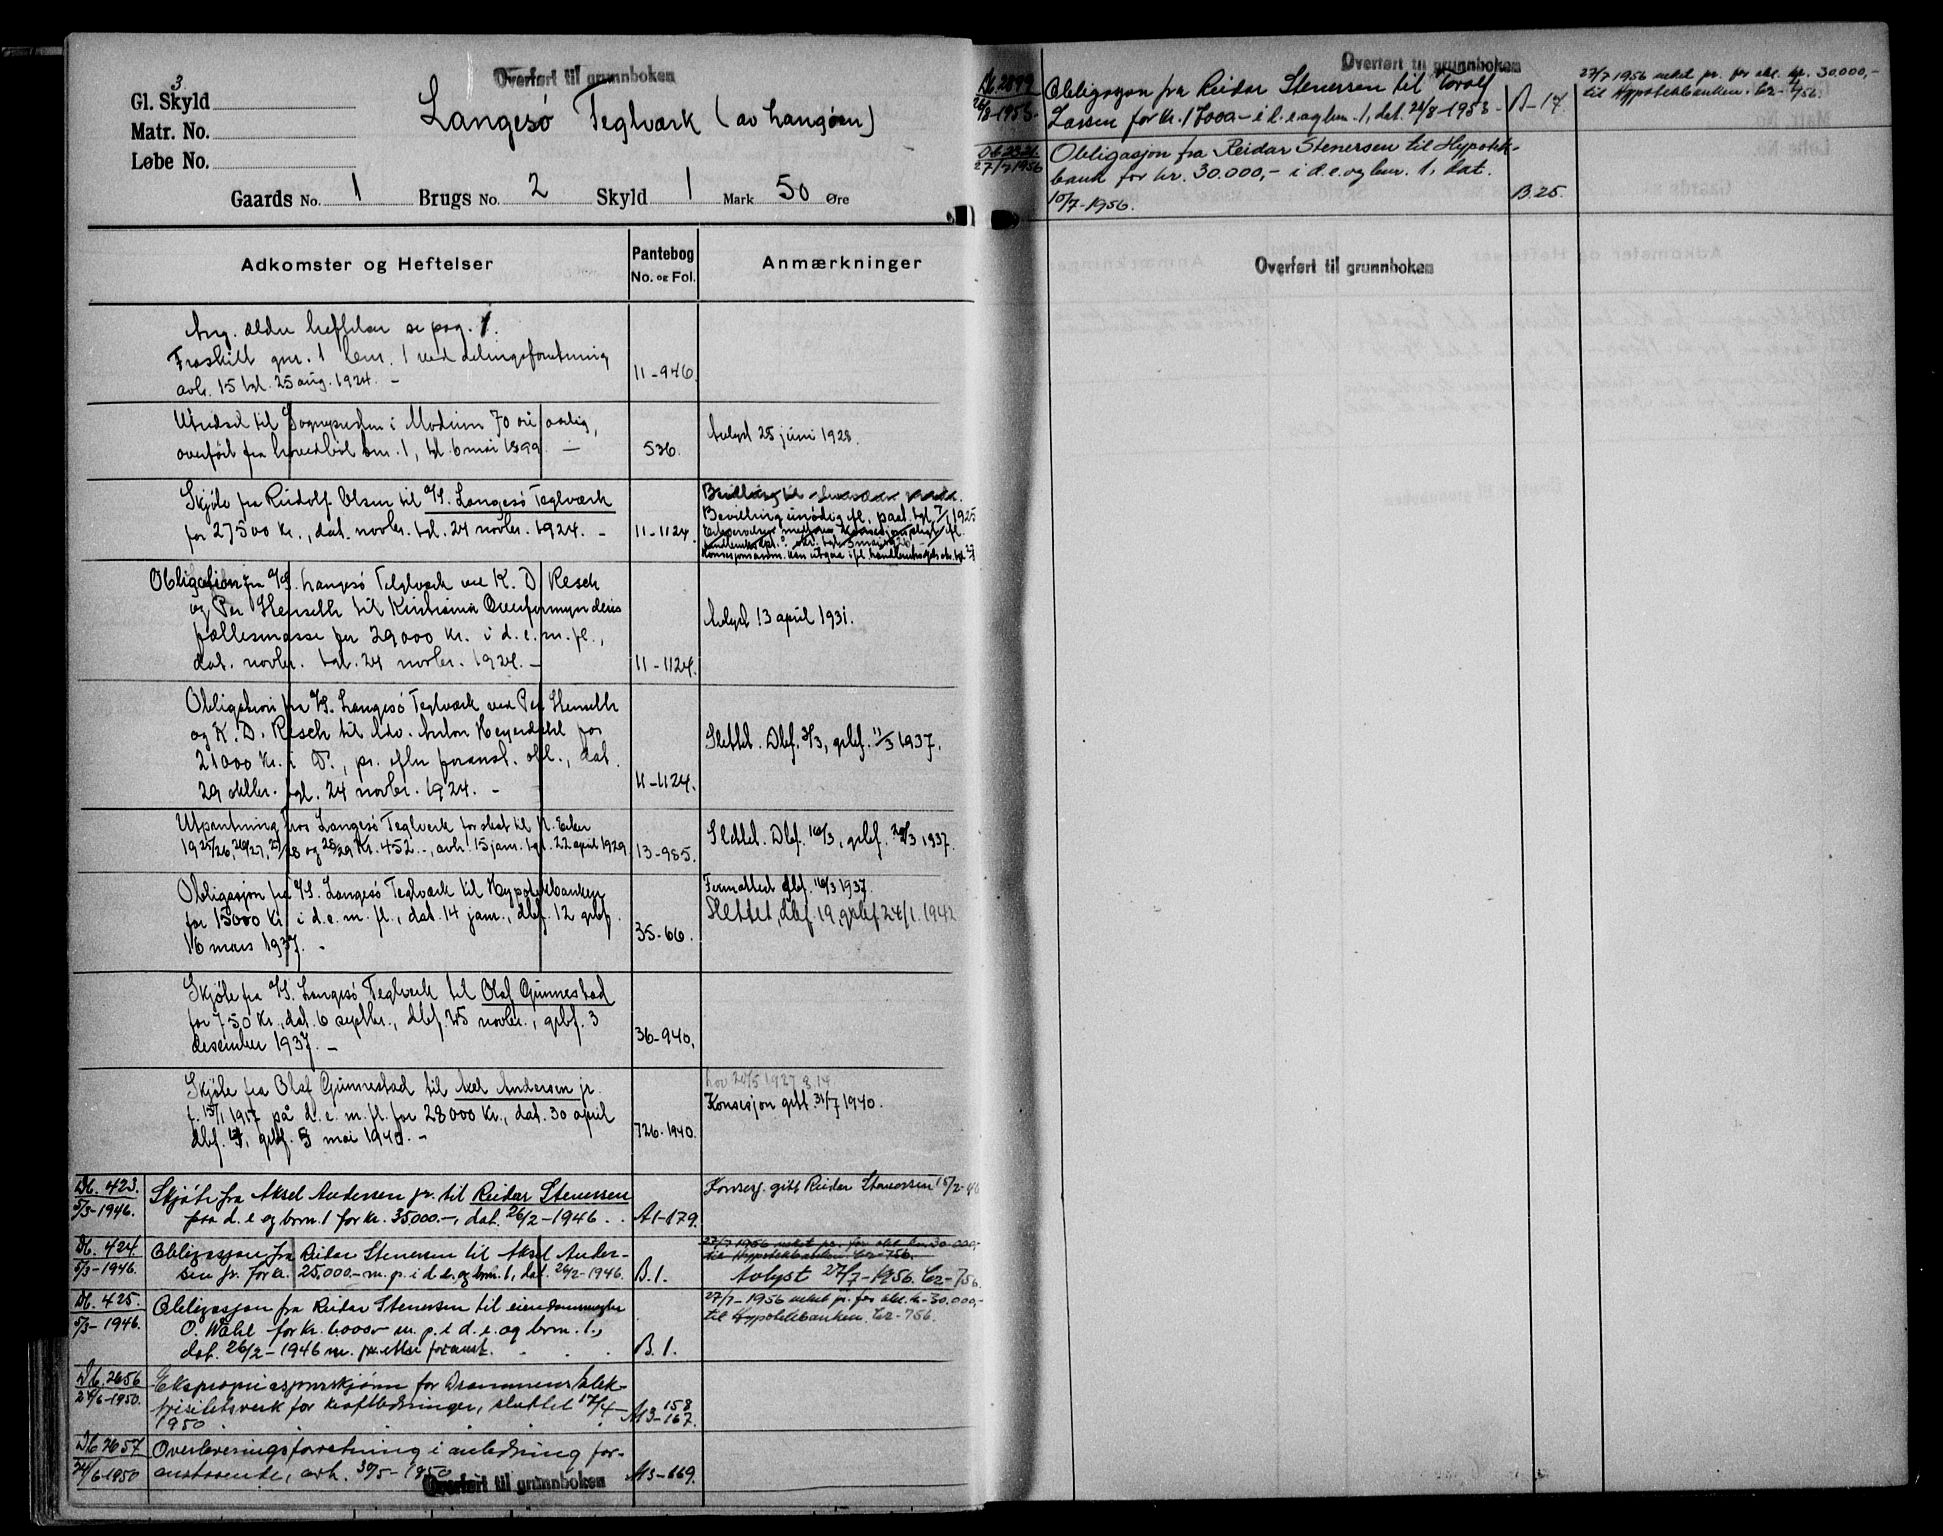 3
Overført til grunnboken
Gl. Skyld
Matr. No.
Løbe No.
Langesø Teglværk (av Langøen)
Gaards No. 1 Brugs No. 2 Skyld 1 Mark 50 Øre
Adkomster og Heftelser
Pantebog
No. og Fol.
Anmærkninger
Ang. ældre heftelser se pag. 1.
Fraskilt gnr. 1 bnr. 1 ved delingsforretning
avh. 15 tgl. 25 aug. 1924. –
11-946.
Utredsel til Sognepresten i Modum 70 øre aarlig,
overført fra hovedbøl bnr. 1, tgl. 6 mai 1899. –
536.
Avlyst 25 juni 1928.
Skjøte fra Reidolf Olsen til A/S. Langesø Teglværk
for 27500 Kr., dat. novbr. tgl. 24 novbr. 1924. –
11-1124.
Bevilling unødig ifl. paat. tgl. 7/1 1925
Obligation fra A/S. Langesø Teglværk ved K. D. Resch
og Per Henseth til Kristiania Overformynderis
fællesmasse for 29000 Kr. i d. e. m. fl.,
dat. novbr. tgl. 24 novbr. 1924. –
11-1124.
Avlyst 13 april 1931.
Obligation fra A/S. Langesø Teglværk ved Per Henseth
og K. D. Resch til Adv. Anton Heyerdahl for
21000 Kr. i D?, pr. efter foranst. obl., dat.
29 oktbr. tgl. 24 novbr. 1924. –
11-1124.
Slettet. Dbf. 3/3, grbf. 11/3 1937.
Utpantning hos Langesø Teglverk for skat til N. Eiker
1925/26, 26/27, 27/28 og 28/29 Kr. 452.-, avh. 15 jan. tgl. 22 april 1929
13-985.
Slettet. Dbf. 16/3, grbf. 20/3 1937.
Obligasjon fra A/S. Langesø Teglværk til Hypotekbanken
for 15000 Kr. i d. e. m. fl., dat. 14 jan., dbf. 12 grbf.
16 mars 1937. –
35-66.
16/3 1937.
Slettet, dbf. 19, grbf 24/1. 1942
Skjøte fra A/S. Langesø Teglverk til Olaf Gunnestad
for 750 Kr., dat. 6 septbr., dbf. 25 novbr., grbf. 3
desember 1937. –
36-940.
Skjøte fra Olaf Gunnestad til Axel Andersen jr.
f. 15/1 1917 på d. e. m. fl. for 28000 Kr., dat. 30 april
dbf. 4, grbf. 8 mai 1940. –
726-1940.
lov 20/5 1927 § 14
Konsesjon gitt 31/7 1940.
Db. 423.
5/3-1946.
Skjøte fra Aksel Andersen jr. til Reidar Stenersen
paa d. e og brn. 1 for kr. 35000.-, dat. 26/2-1946.
A1-179.
Konsesj. gitt Reidar Stenersen 15/2-46
Db. 424.
5/3-1946.
Obligasjon fra Reidar Stenersen til Aksel Ander-
sen jr. for kr. 25.000.- m. p. i d. e. og brn. 1, dat. 26/2-1946.
B. 1.
27/7 1956 veket pr. for obl. kr. 30 000,-
til Hypotekbanken. C2-756.
Avlyst 27/7-1956. C2-756.
Db. 425.
5/3-1946.
Obligasjon fra Reidar Stenersen til eiendomsmegler
O. Wahl for kr. 6000.- m. p. i d. e. og brn. 1.,
dat. 26/2-1946 m. pr. etter foranst.
B. 1.
27/7-1956 veket pr. for obl. kr. 30.000,-
til Hypotekbanken. C2-756.
Db. 2656
24/6-1950.
Ekspropriasjonsskjønn for Drammens Elek-
trisitetsverk for kraftledninger, sluttet 17/4-
1950
A13-158
167.
Db. 2657
24/6-1950
Overleveringsforretning i anledning for-
anstaaende, avh. 30/5-1950
A13-169.
Overført til grunnboken
Db. 2899
26/8-1953.
Obligasjon fra Reidar Stenersen til Torolf
Lassen for kr. 17000.- i d. e og bnr. 1, dat. 21/8-1953 -
B-17.
Overført til grunnboken
27/7 1956 veket pr. for obl. kr. 30.000,-
til Hypotekbanken. C2-756.
Db 2321
27/7 1956
Obligasjon fra Reidar Stenersen til Hypotek-
bank for kr. 30.000,- i d. e. og bnr. 1, dat.
10/7-1956.
B. 25.
Overført til grunnboken